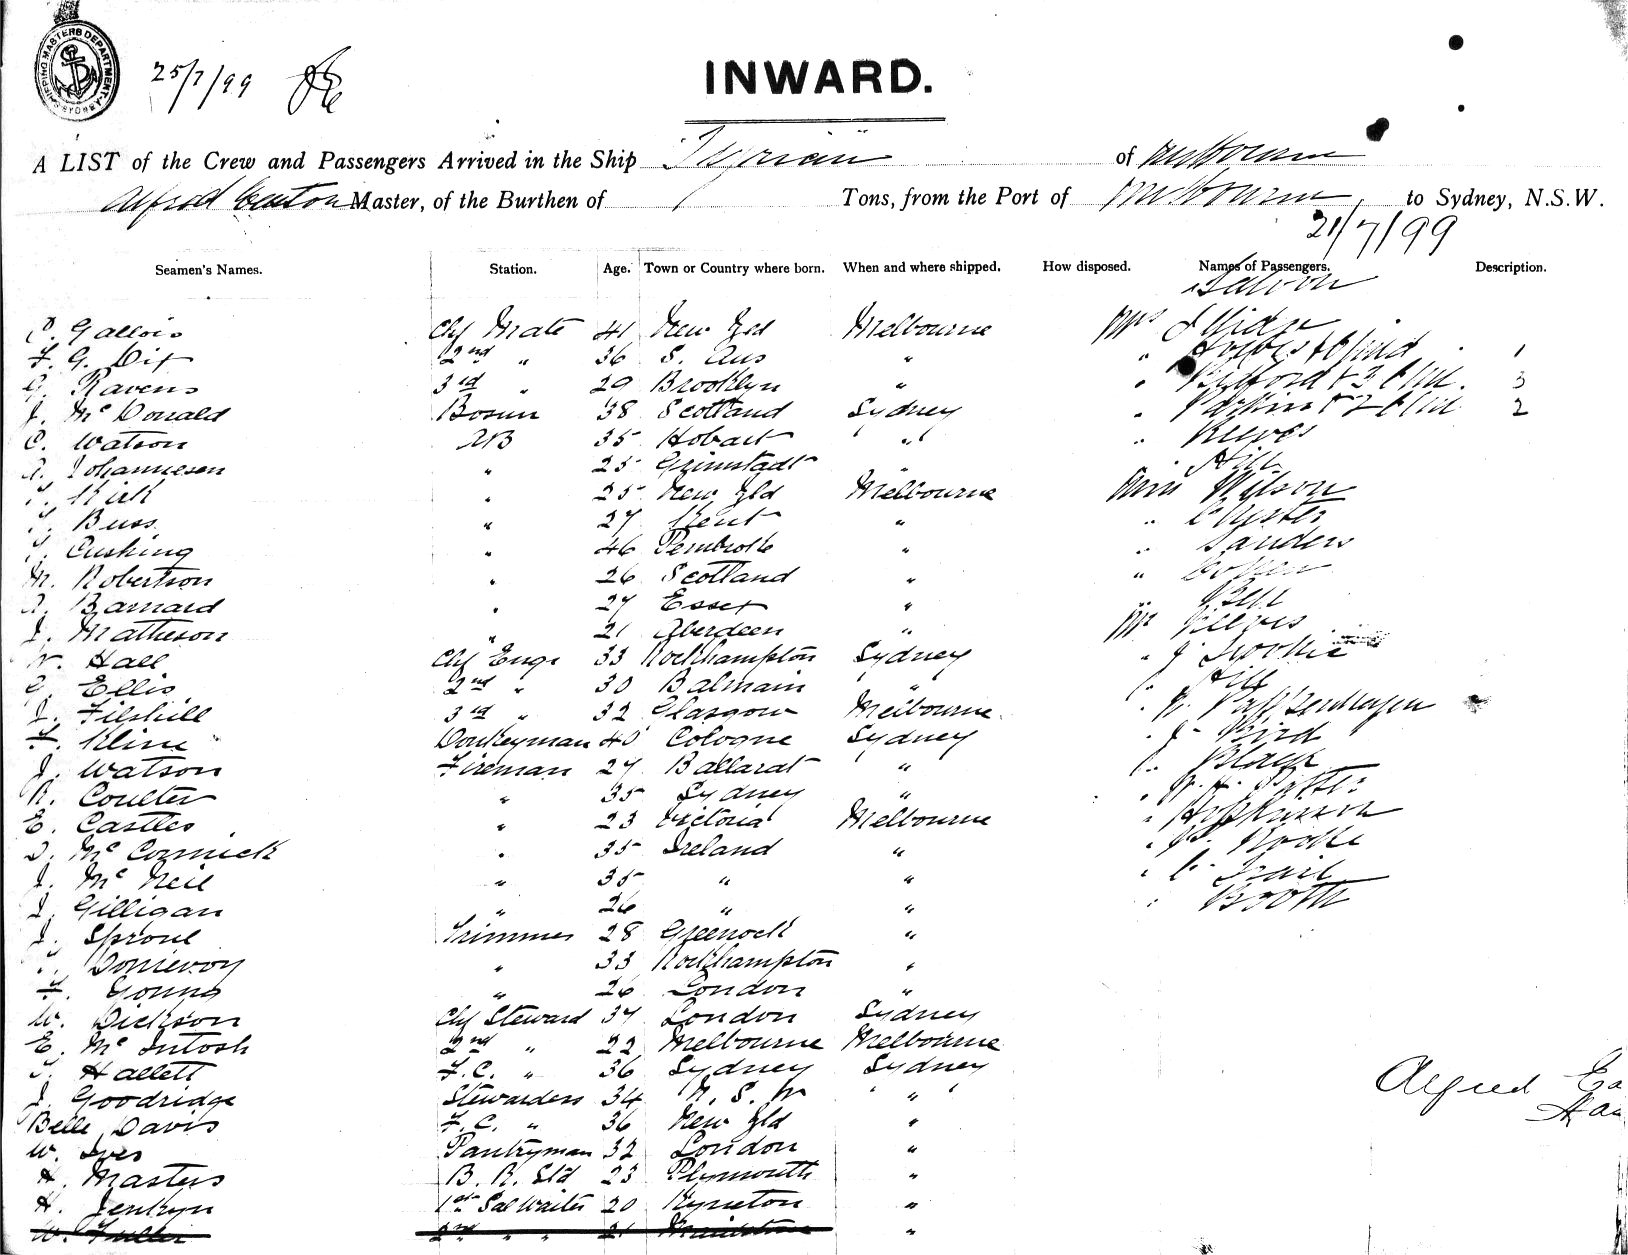 SHIPPING MASTERS DEPARTMENT SYDNEY
25/7/99
INWARD.
A LIST of the Crew and Passengers Arrived in the Ship "Tyrian" of Melbourne
Alfred Master, of the Burthen of / Tons, from the Port of Melbourne, to Sydney, N.S.W.
21/7/99
Seamen's Names. Station. Age. Town or Country where born. When and where shipped. How disposed. Names of Passengers. Description.
Saloon
Gallois Chf Mate 41 New Zed Melbourne Mrs J
F. G. Dix 2nd " 36 S. Aus " " 1
G. Ravens 3rd " 29 Brooklyn " " & 3 Child. 3
J. McDonald Bosun 38 Scotland Sydney " & 2 Child 2
C. Watson AB 35 Hobart " " Reeves
A. Johannesen " 25 Grimstadt " Hill
Kirk " 25 New Zld Melbourne Miss Wilson
Buss " 27 Kent " "
Cushing " 46 Pembroke " " Sanders
M. Robertson " 26 Scotland " "
A. Barnard " 27 Essex " " Bell
J. Matheson " 21 Aberdeen " Mr Reeves
W. Hall Chf Engr 33 Rockhampton Sydney " J
G. Ellis 2nd " 30 Balmain " Hill
J. Filshill 3rd " 32 Glasgow Melbourne "
F. Kline Donkeyman 40 Cologne Sydney " J. Bird
J. Watson Fireman 27 Ballarat " Black
R. Coulter " 35 Sydney " "
E. Castles " 23 Victoria Melbourne " Hopkinson
D. McCormick " 35 Ireland " "
J. McNeil " 35 " " "
J. Gilligan " 26 " " " Booth
J. Sproul Trimmer 28 Greenock "
Donlevoy " 33 Rockhampton "
F. Young " 26 London "
W. Dickson Chf Steward 37 London Sydney
E. McIntosh 2nd " 22 Melbourne Melbourne
T. Hallett F.C. " 36 Sydney Sydney
J. Goodridge Stewardess 34 N. S. W "
Belle Davis F.C. " 36 New Zld "
W. Ives Pantryman 32 London "
H. Masters B. R. Std 23 Plymouth "
H. Jenkyn 1st Sal Waiter 20 Kyneton "
W. Fuller 2nd " " 21 Maidstone "
Alfred